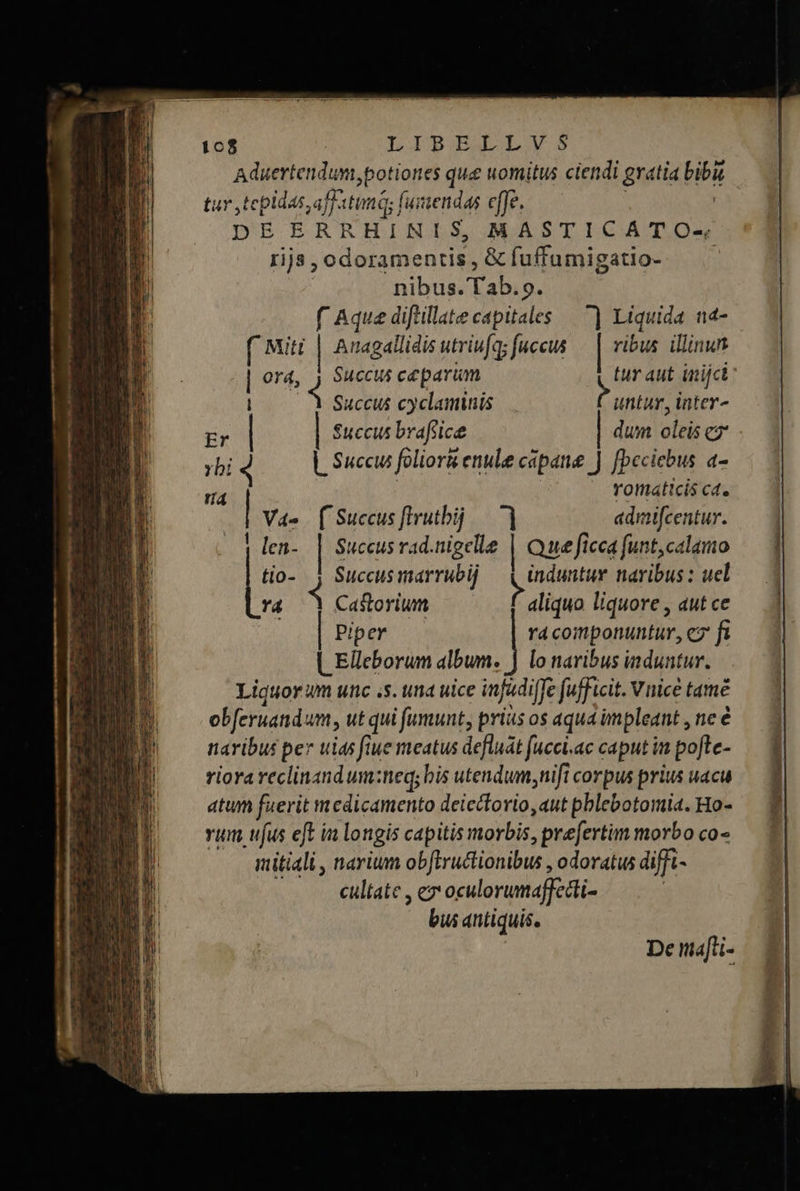 108 LIBELLVS
Aduertendum,potiones quæ uomitus ciendi gratia bibũ
tur,tepidas,affatimq; ſumendas eſſe.
DE ERRHINIS, MASTICATO-
rijs, odoramentis, & ſuffumigatio-
nibus. Tab.9.
Er
rhi
na
Miti
ora,
Aquæ diſtillatæ capitales
Anagallidis utriuſq; ſuccus
Succus cæparum
Succus cyclaminis
Succus braſsicæ
Succus foliorũ enulæ cãpanæ
Va-
len-
tio-
ra
Succus ſtruthij
Succus rad.nigellæ
Succus marrubij
Caſtorium
Piper
Elleborum album.
Liquida na-
ribus illinun
tur aut inijci
untur, inter-
dum oleis &
ſpeciebus a-
romaticis ca.
admiſcentur.
Quæ ſicca ſunt,calamo
induntur naribus: uel
aliquo liquore, aut ce
ra componuntur, & ſi
lo naribus induntur.
Liquorum unc .s. una uice infudiſſe ſufficit. Vnicè tamẽ
obſeruandum, ut qui ſumunt, prius os aqua impleant, ne è
naribus per uias ſiue meatus defluãt ſucci.ac caput in poſte-
riora reclinandum:neq; his utendum,niſi corpus prius uacu
atum fuerit medicamento deiectorio,aut phlebotomia. Ho-
rum uſus eſt in longis capitis morbis, præſertim morbo co-
mitiali, narium obſtructionibus, odoratus diffi-
cultate, & oculorumaffecti-
bus antiquis.
De maſti-